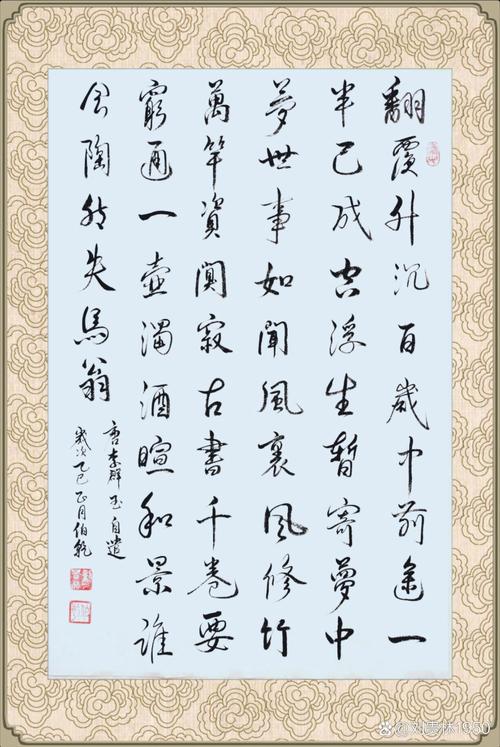 翻覆升沉百歲中前途一
半已成空浮生暫寄夢中
夢世事如聞風裏風修竹
萬竿資闃寂古書千卷要
窮通一壺濁酒暄和景誰
会陶然失馬翁
唐李群玉自遣
歲次乙巳正月伯乾
林1950